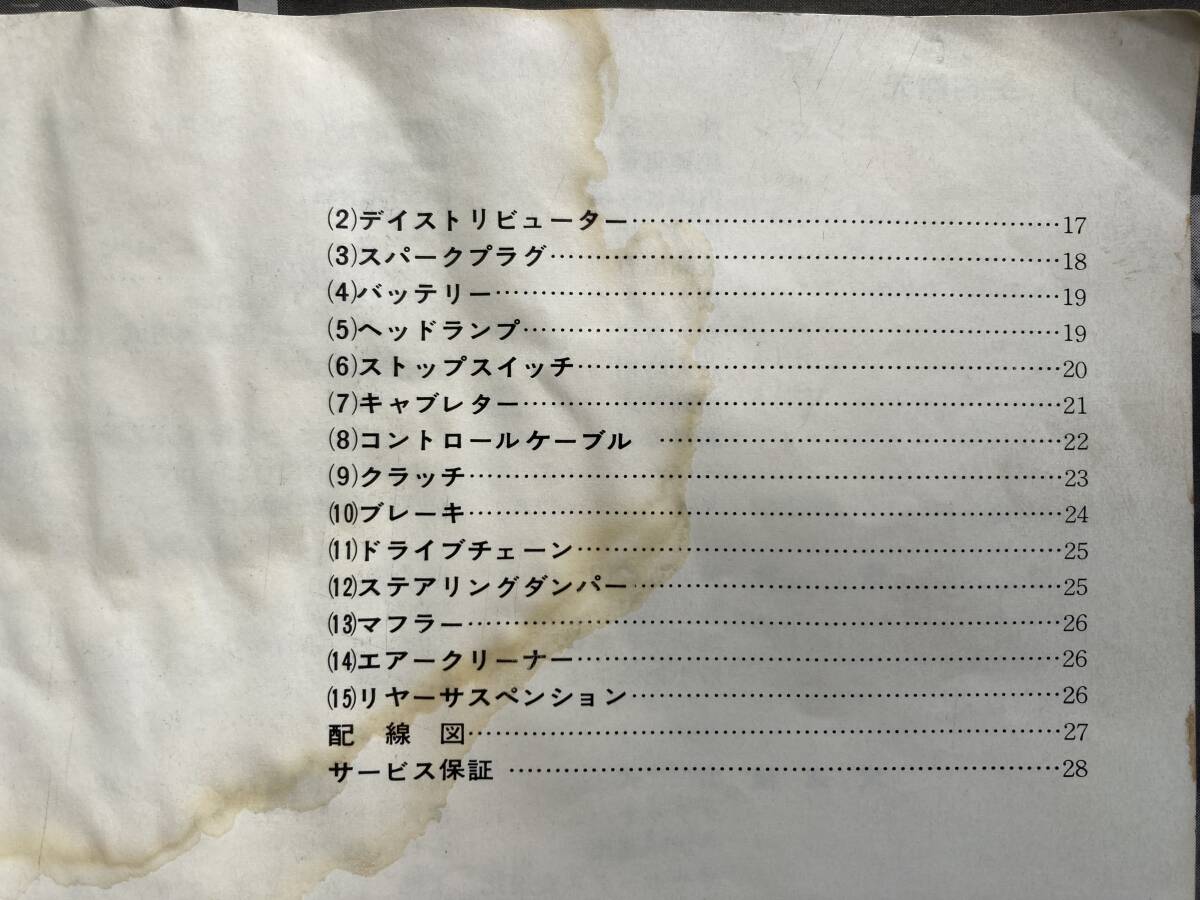 (2)デイストリビューター……………………………………17
(3)スパークプラグ……………………………………………18
(4)バッテリー…………………………………………………19
(5)ヘッドランプ………………………………………………19
(6)ストップスイッチ…………………………………………20
(7)キャブレター………………………………………………21
(8)コントロールケーブル ……………………………………22
(9)クラッチ……………………………………………………23
(10)ブレーキ……………………………………………………24
(11)ドライブチェーン…………………………………………25
(12)ステアリングダンパー……………………………………25
(13)マフラー……………………………………………………26
(14)エアークリーナー…………………………………………26
(15)リヤーサスペンション……………………………………26
配 線 図……………………………………………………27
サービス保証 ………………………………………………28